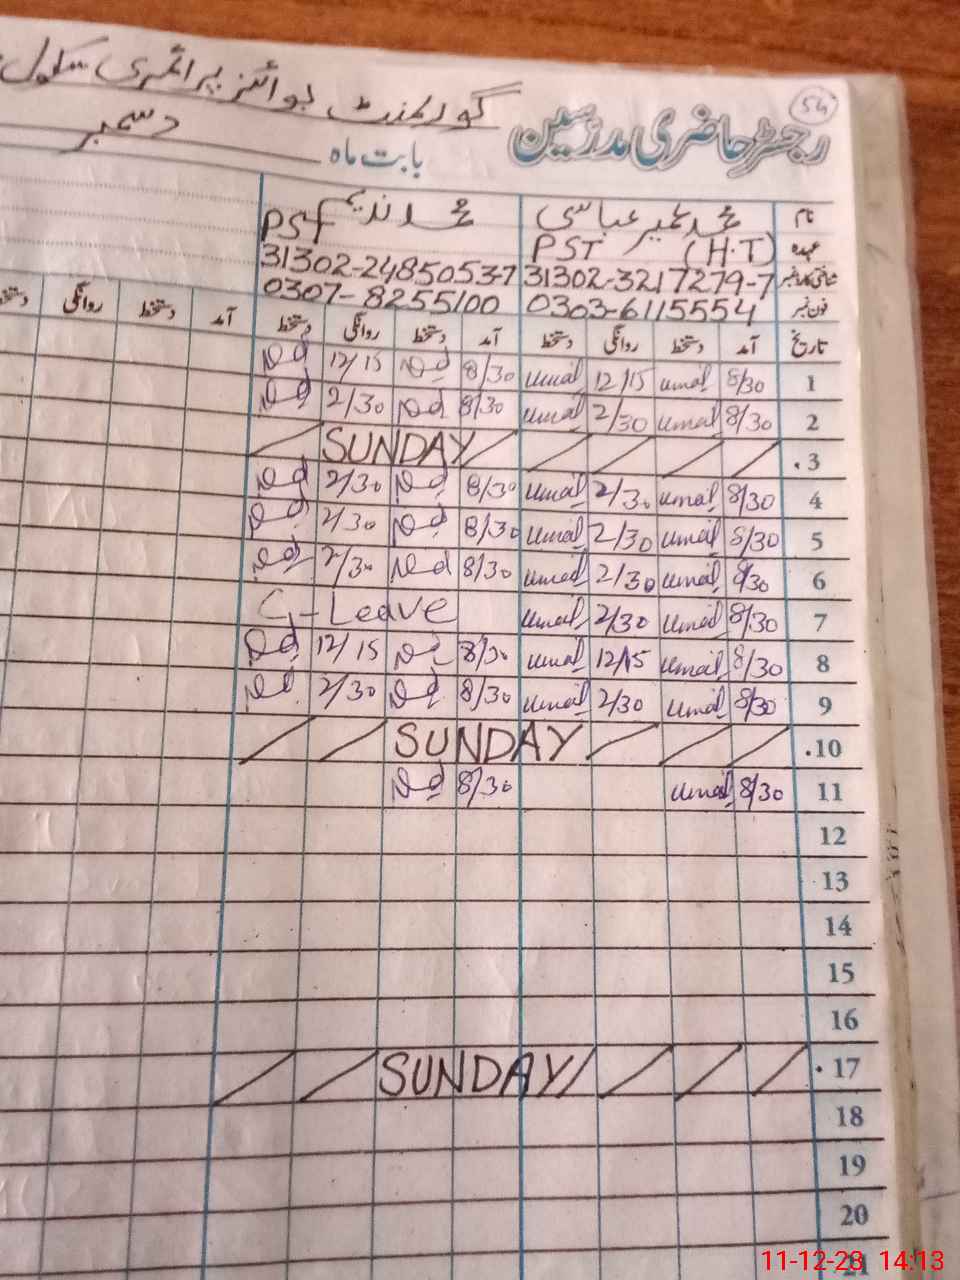 54
رجسٹر حاضری مدرسین گورنمنٹ بوائز پرائمری سکول
بابت ماہ دسمبر
نام محمد عمیر عباسی محمد ندیم
عہدہ PST (H.T) PST
شناختی کارڈ نمبر 31302-3217279-7 31302-2485053-7
فون نمبر 0303-6115554 0307-8255100
تاریخ آمد دستخط روانگی دستخط آمد دستخط روانگی دستخط آمد دستخط روانگی دستخط
1 8/30 Umair 12/15 Umair 8/30 Nd 12/15 Nd
2 8/30 Umair 2/30 Umair 8/30 Nd 2/30 Nd
.3 SUNDAY
4 8/30 Umair 2/30 Umair 8/30 Nd 2/30 Nd
5 8/30 Umair 2/30 Umair 8/30 Nd 2/30 Nd
6 8/30 Umair 2/30 Umair 8/30 Nd 2/30 Nd
7 8/30 Umair 2/30 Umair C-Leave
8 8/30 Umair 12/15 Umair 8/30 Nd 12/15 Nd
9 8/30 Umair 2/30 Umair 8/30 Nd 2/30 Nd
.10 SUNDAY
11 8/30 Umair 8/30 Nd
12
13
14
15
16
.17 SUNDAY
18
19
20
21
11-12-23 14:13